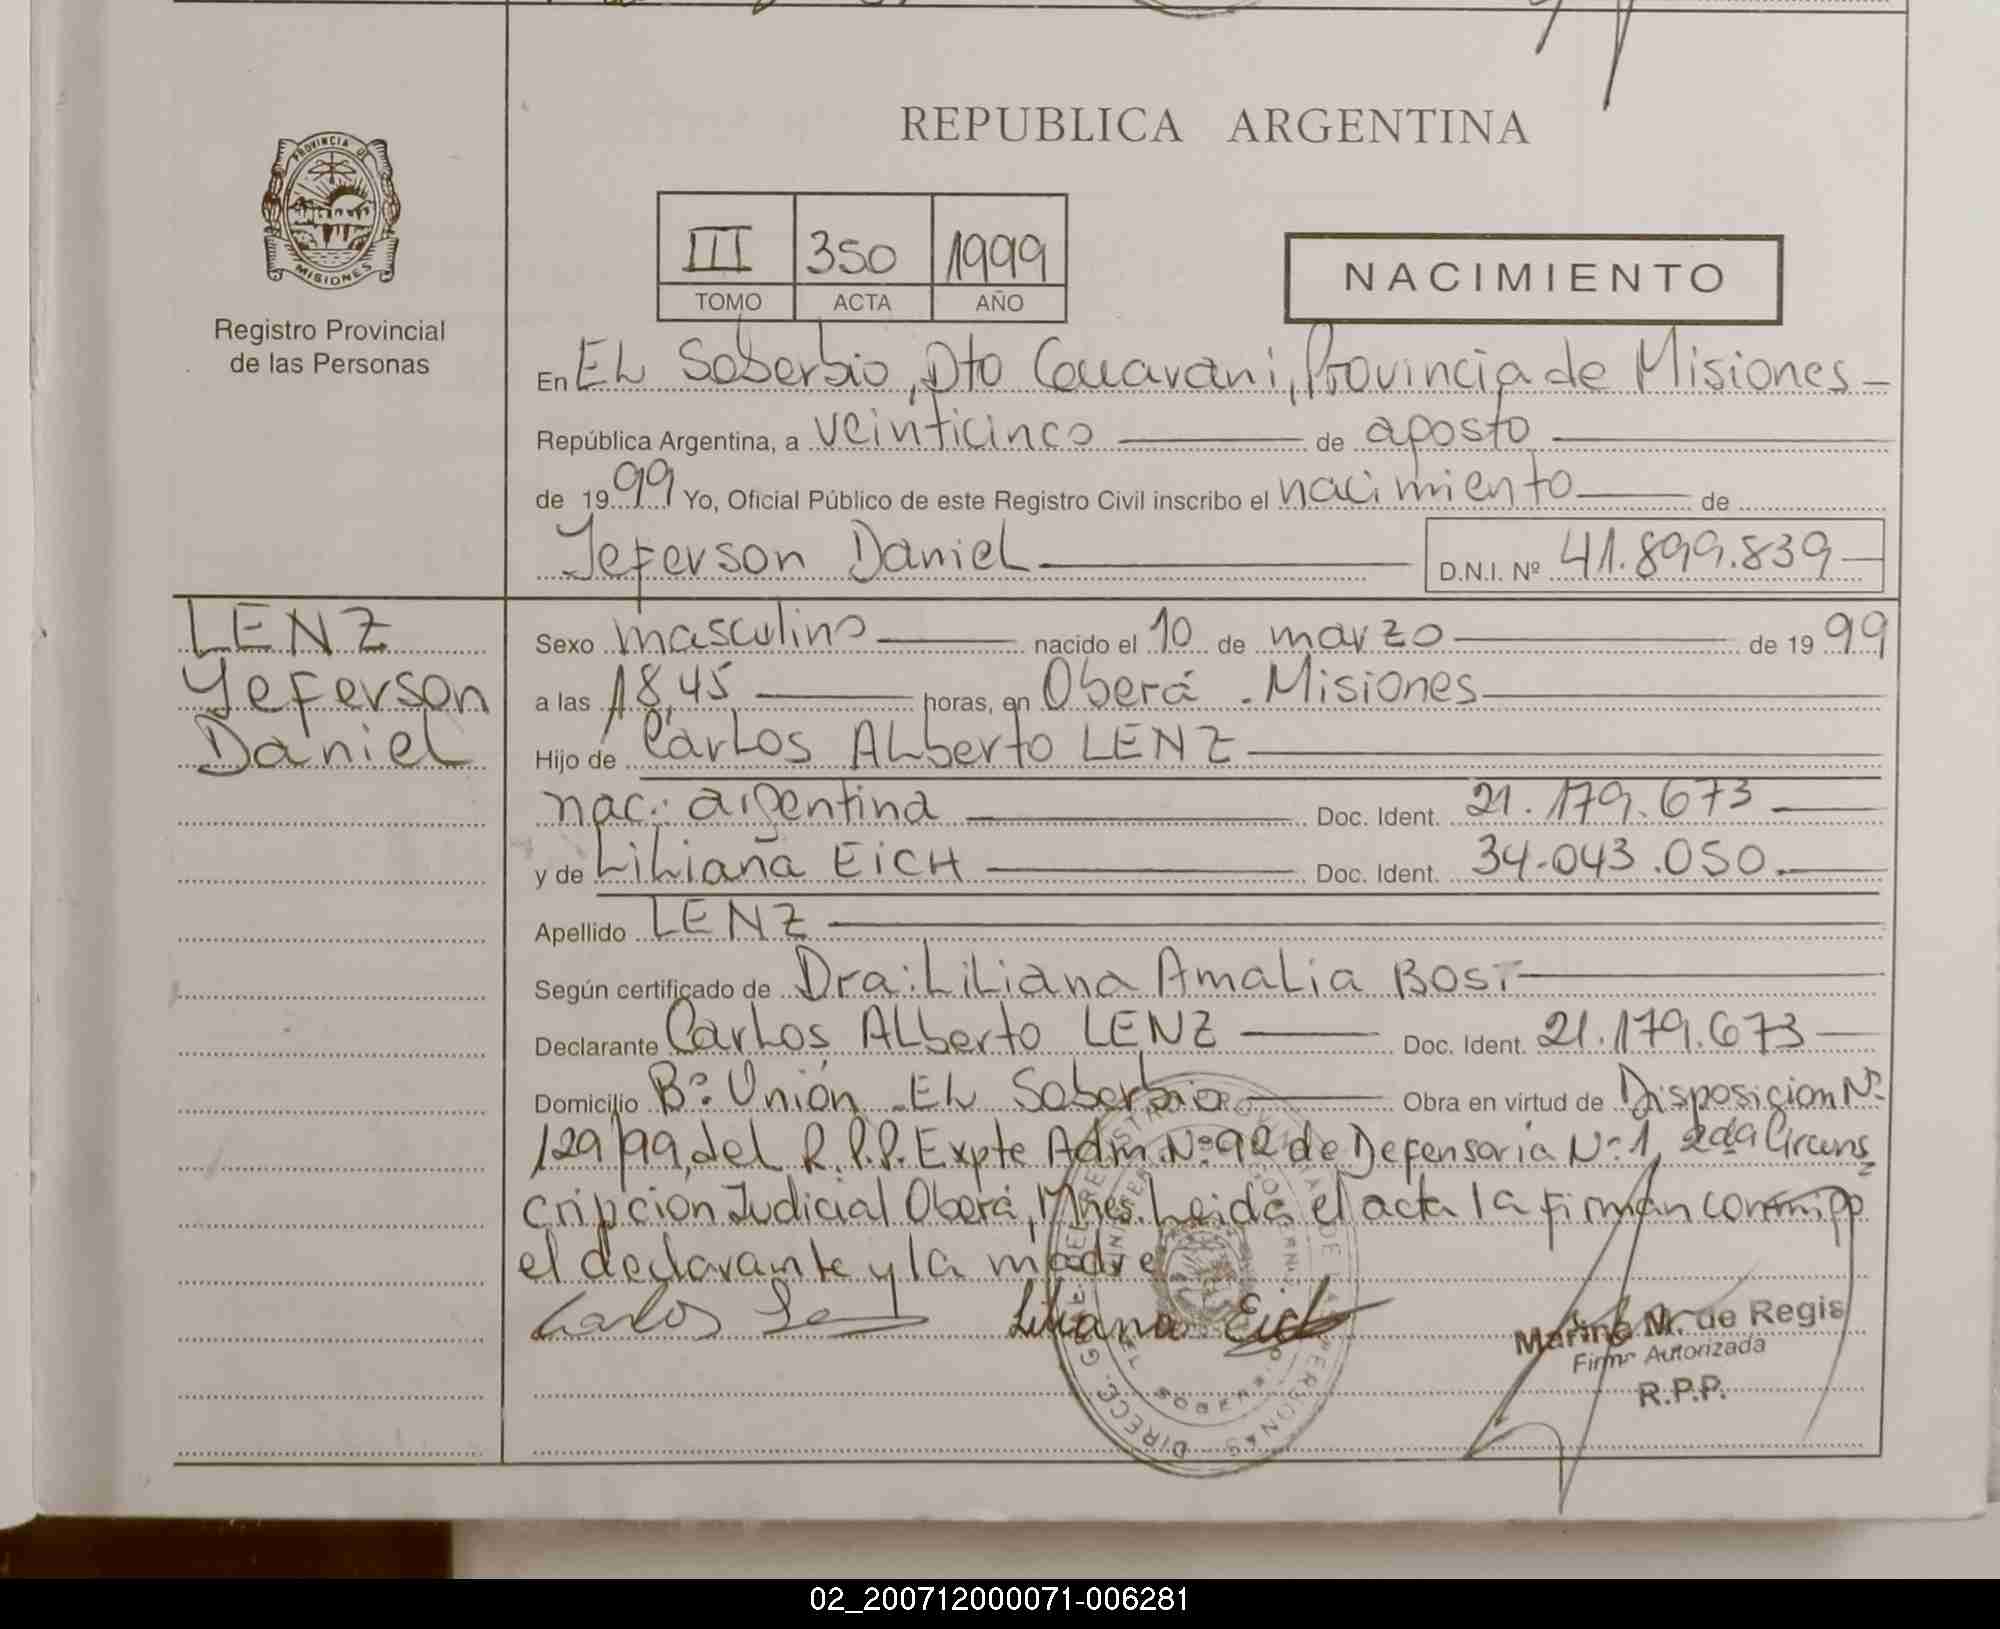 REPUBLICA ARGENTINA
PROVINCIA DE
MISIONES
Registro Provincial
de las Personas
III 350 1999
TOMO ACTA AÑO
NACIMIENTO
En EL Soberbio, Dto Guarani, Provincia de Misiones
República Argentina, a veinticinco de agosto
de 1999 Yo, Oficial Público de este Registro Civil inscribo el nacimiento de
Yeferson Daniel D.N.I. Nº 41.899.839
LENZ
Yeferson
Daniel
Sexo masculino nacido el 10 de marzo de 1999
a las 18,45 horas, en Oberá - Misiones
Hijo de Carlos Alberto LENZ
nac: argentina Doc. Ident. 21.179.673
y de Liliana EICH Doc. Ident. 34.043.050
Apellido LENZ
Según certificado de Dra: Liliana Amalia Bosi
Declarante Carlos Alberto LENZ Doc. Ident. 21.179.673
Domicilio Bº Unión - EL Soberbio Obra en virtud de Disposicion Nº
129/99, del R.P.P. Expte Adm. Nº 92 de Defensoria Nº 1, 2da Circuns
cripcion Judicial Oberá, Mnes. Leida el acta la firman conmigo
el declarante y la madre
Carlos Liliana Eich
Marina N. de Regis
Firma Autorizada
R.P.P.
EL SOBERBIO
02_200712000071-006281